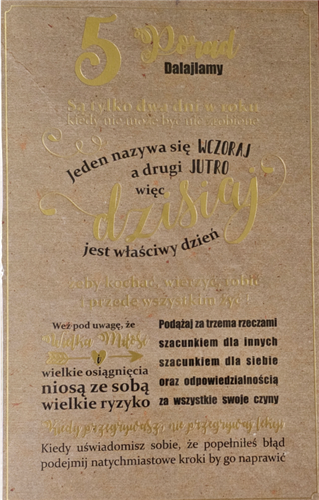 5 Porad
Dalajlamy
Są tylko dwa dni w roku
Kiedy nie może być nic zrobione
Jeden nazywa się WCZORAJ
a drugi JUTRO
więc
dzisiaj
jest właściwy dzień
żeby kochać, wierzyć, robić
i przede wszystkim żyć!
Weź pod uwagę, że
Wielka Miłość
i
wielkie osiągnięcia
niosą ze sobą
wielkie ryzyko
Podążaj za trzema rzeczami
szacunkiem dla innych
szacunkiem dla siebie
oraz odpowiedzialnością
za wszystkie swoje czyny
Kiedy przegrywasz, nie przegrywaj lekcji
Kiedy uświadomisz sobie, że popełniłeś błąd
podejmij natychmiastowe kroki by go naprawić